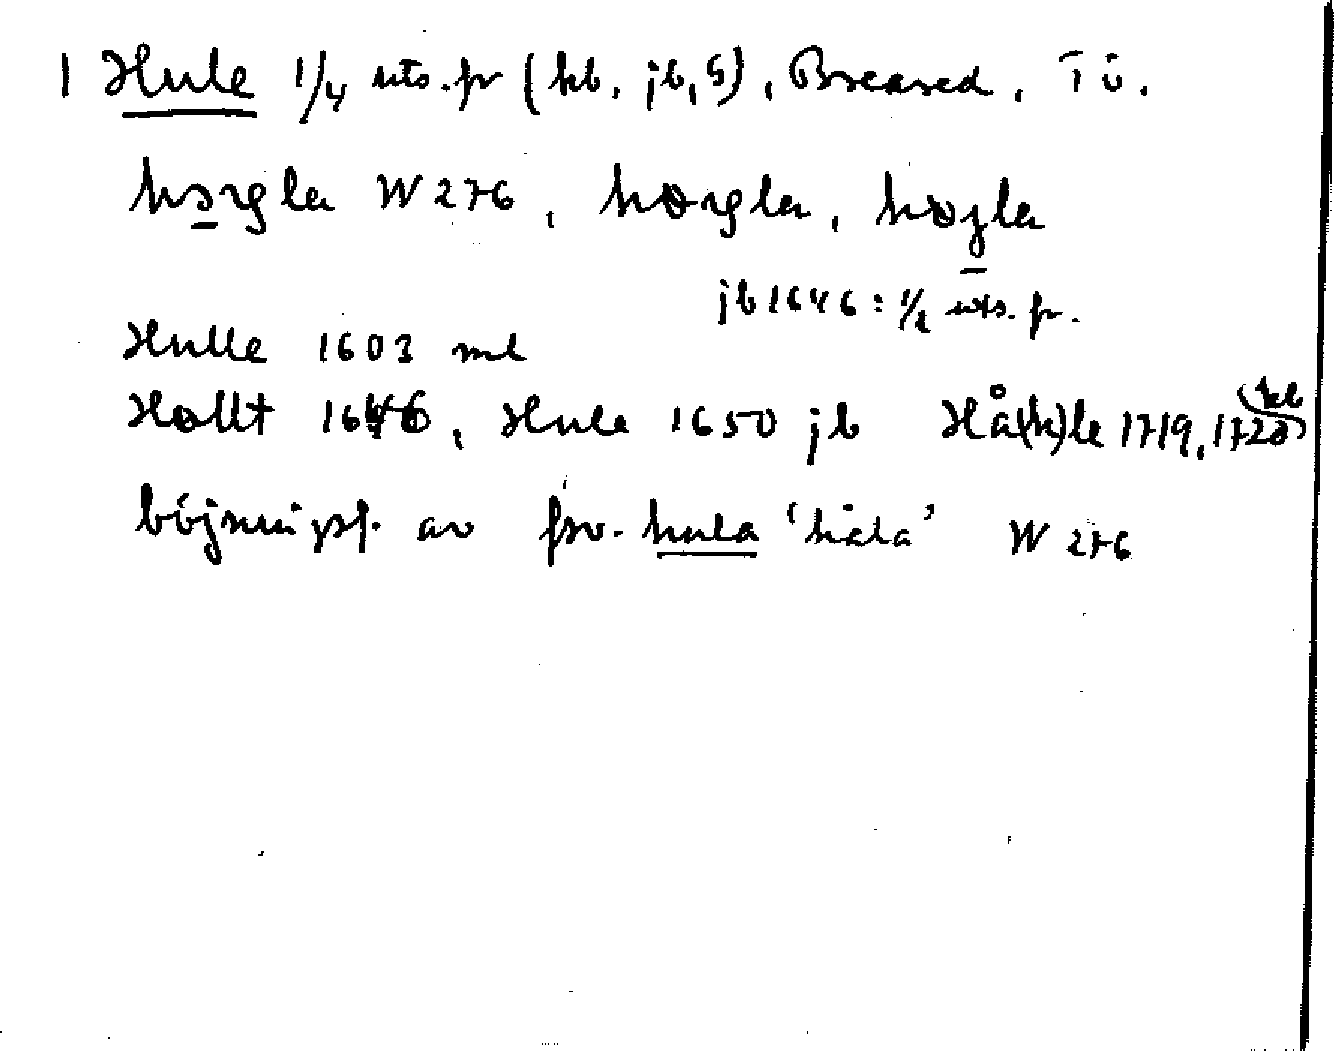 1 Hule 1/4 uts. fr (kb, jb, G), Breared, Tö.
W 276,
jb 1646: 1/2 uts. fr.
Hulle 1603 ml
Hollt 1646, Hule 1650 jb Hå(h)le 1719, 1728 kb
böjningsf. av fsv. hula 'håla' W 276